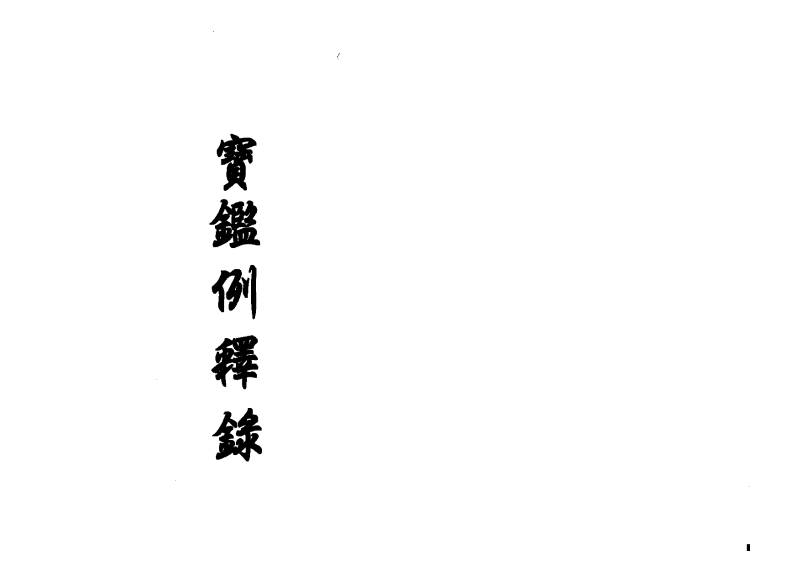 寶鑑例釋錄